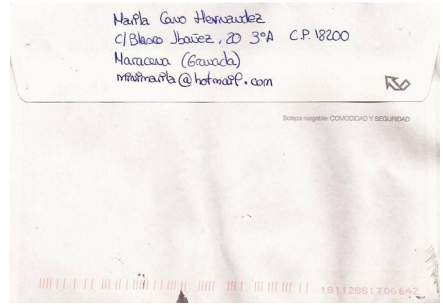 Marifla Cano Hernandez
C/Blasco Ibañez, 20 3ºA C.P. 18200
Maracena (Granada)
minimarifla@hotmail.com
Solapa reigable: COMODIDAD Y SEGURIDAD